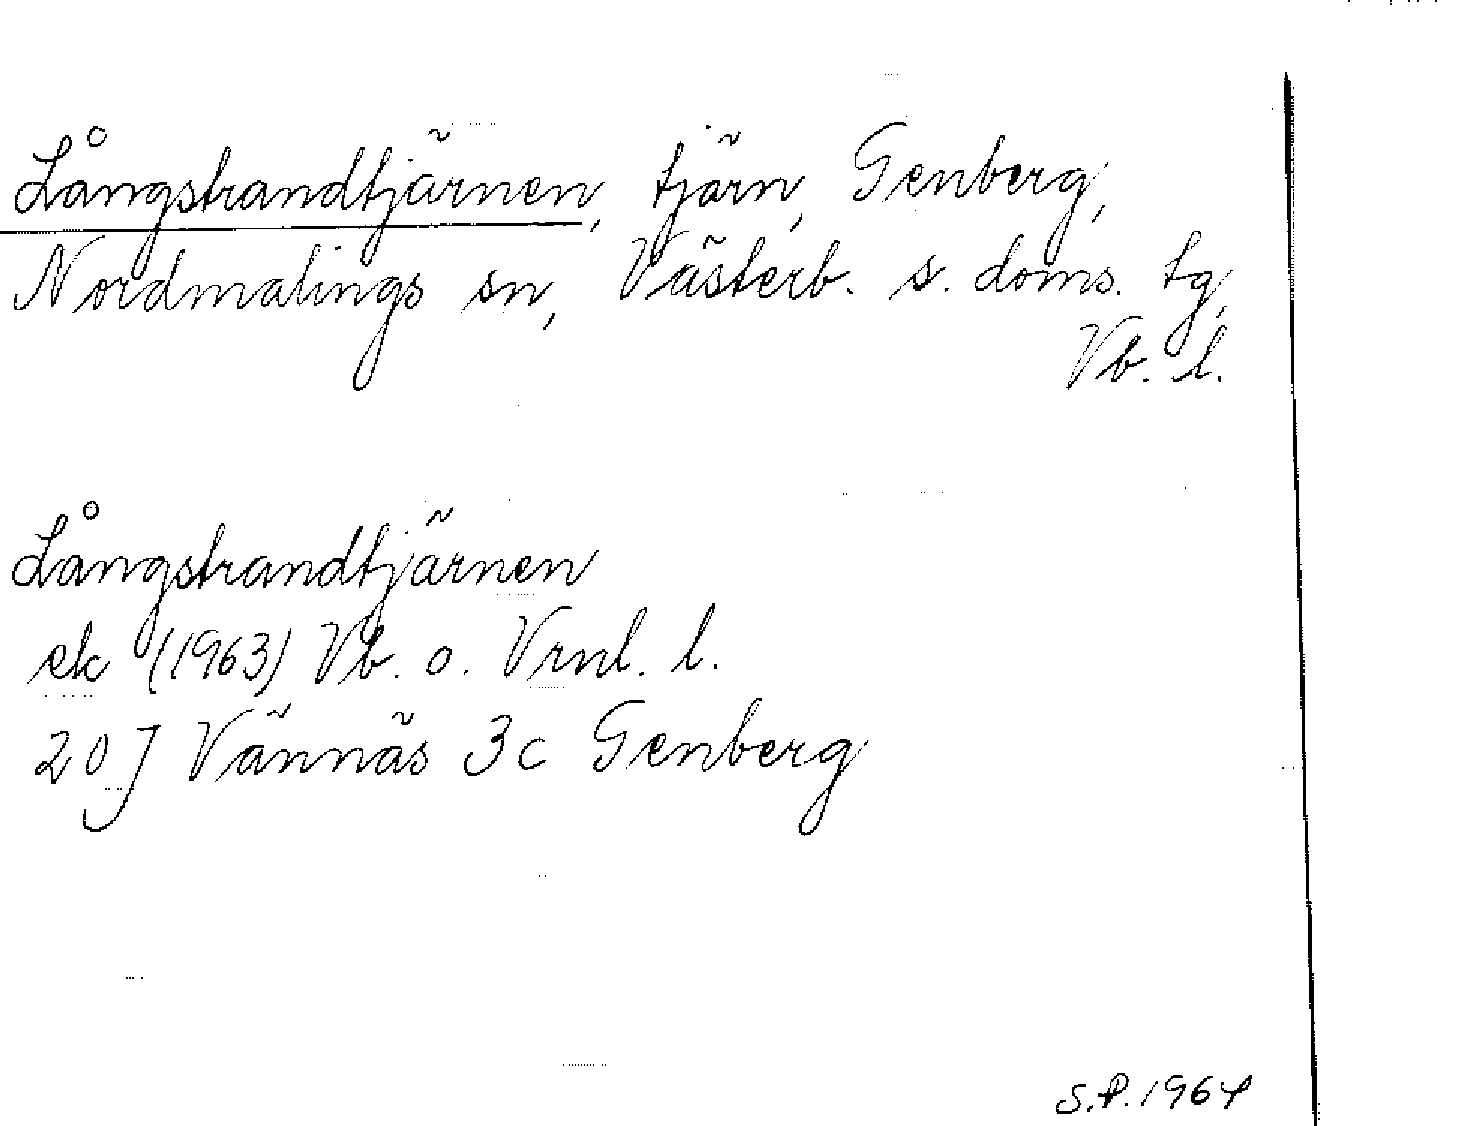 Långstrandtjärnen, tjärn, Genberg,
Nordmalings sn, Västerb. s. doms. tg,
Vb. l.
Långstrandtjärnen
ek (1963) Vb. o. Vrnl. l.
20 J Vännäs 3c Genberg
S.P. 1964